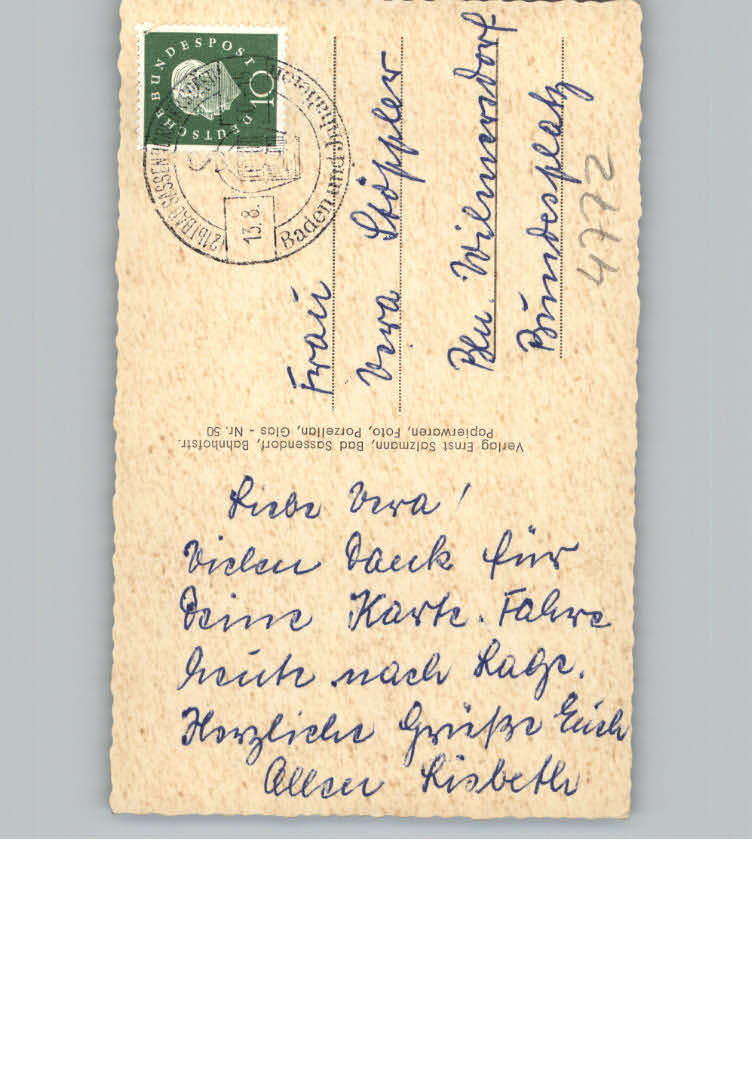 Liebe Vera!
Vielen Dank für
Deine Karte. Fahre
heute nach Lage.
Herzliche Grüße Euch
Allen Lisbeth
Verlag Ernst Salzmann, Bad Sassendorf, Bahnhofstr.
Papierwaren, Foto, Porzellan, Glas - Nr. 50
Frau
Vera Stöppler
Bln. Wilmersdorf
Bundesplatz
4772
DEUTSCHE BUNDESPOST
10
(21b) BAD SASSENDORF
13.8.
Baden und